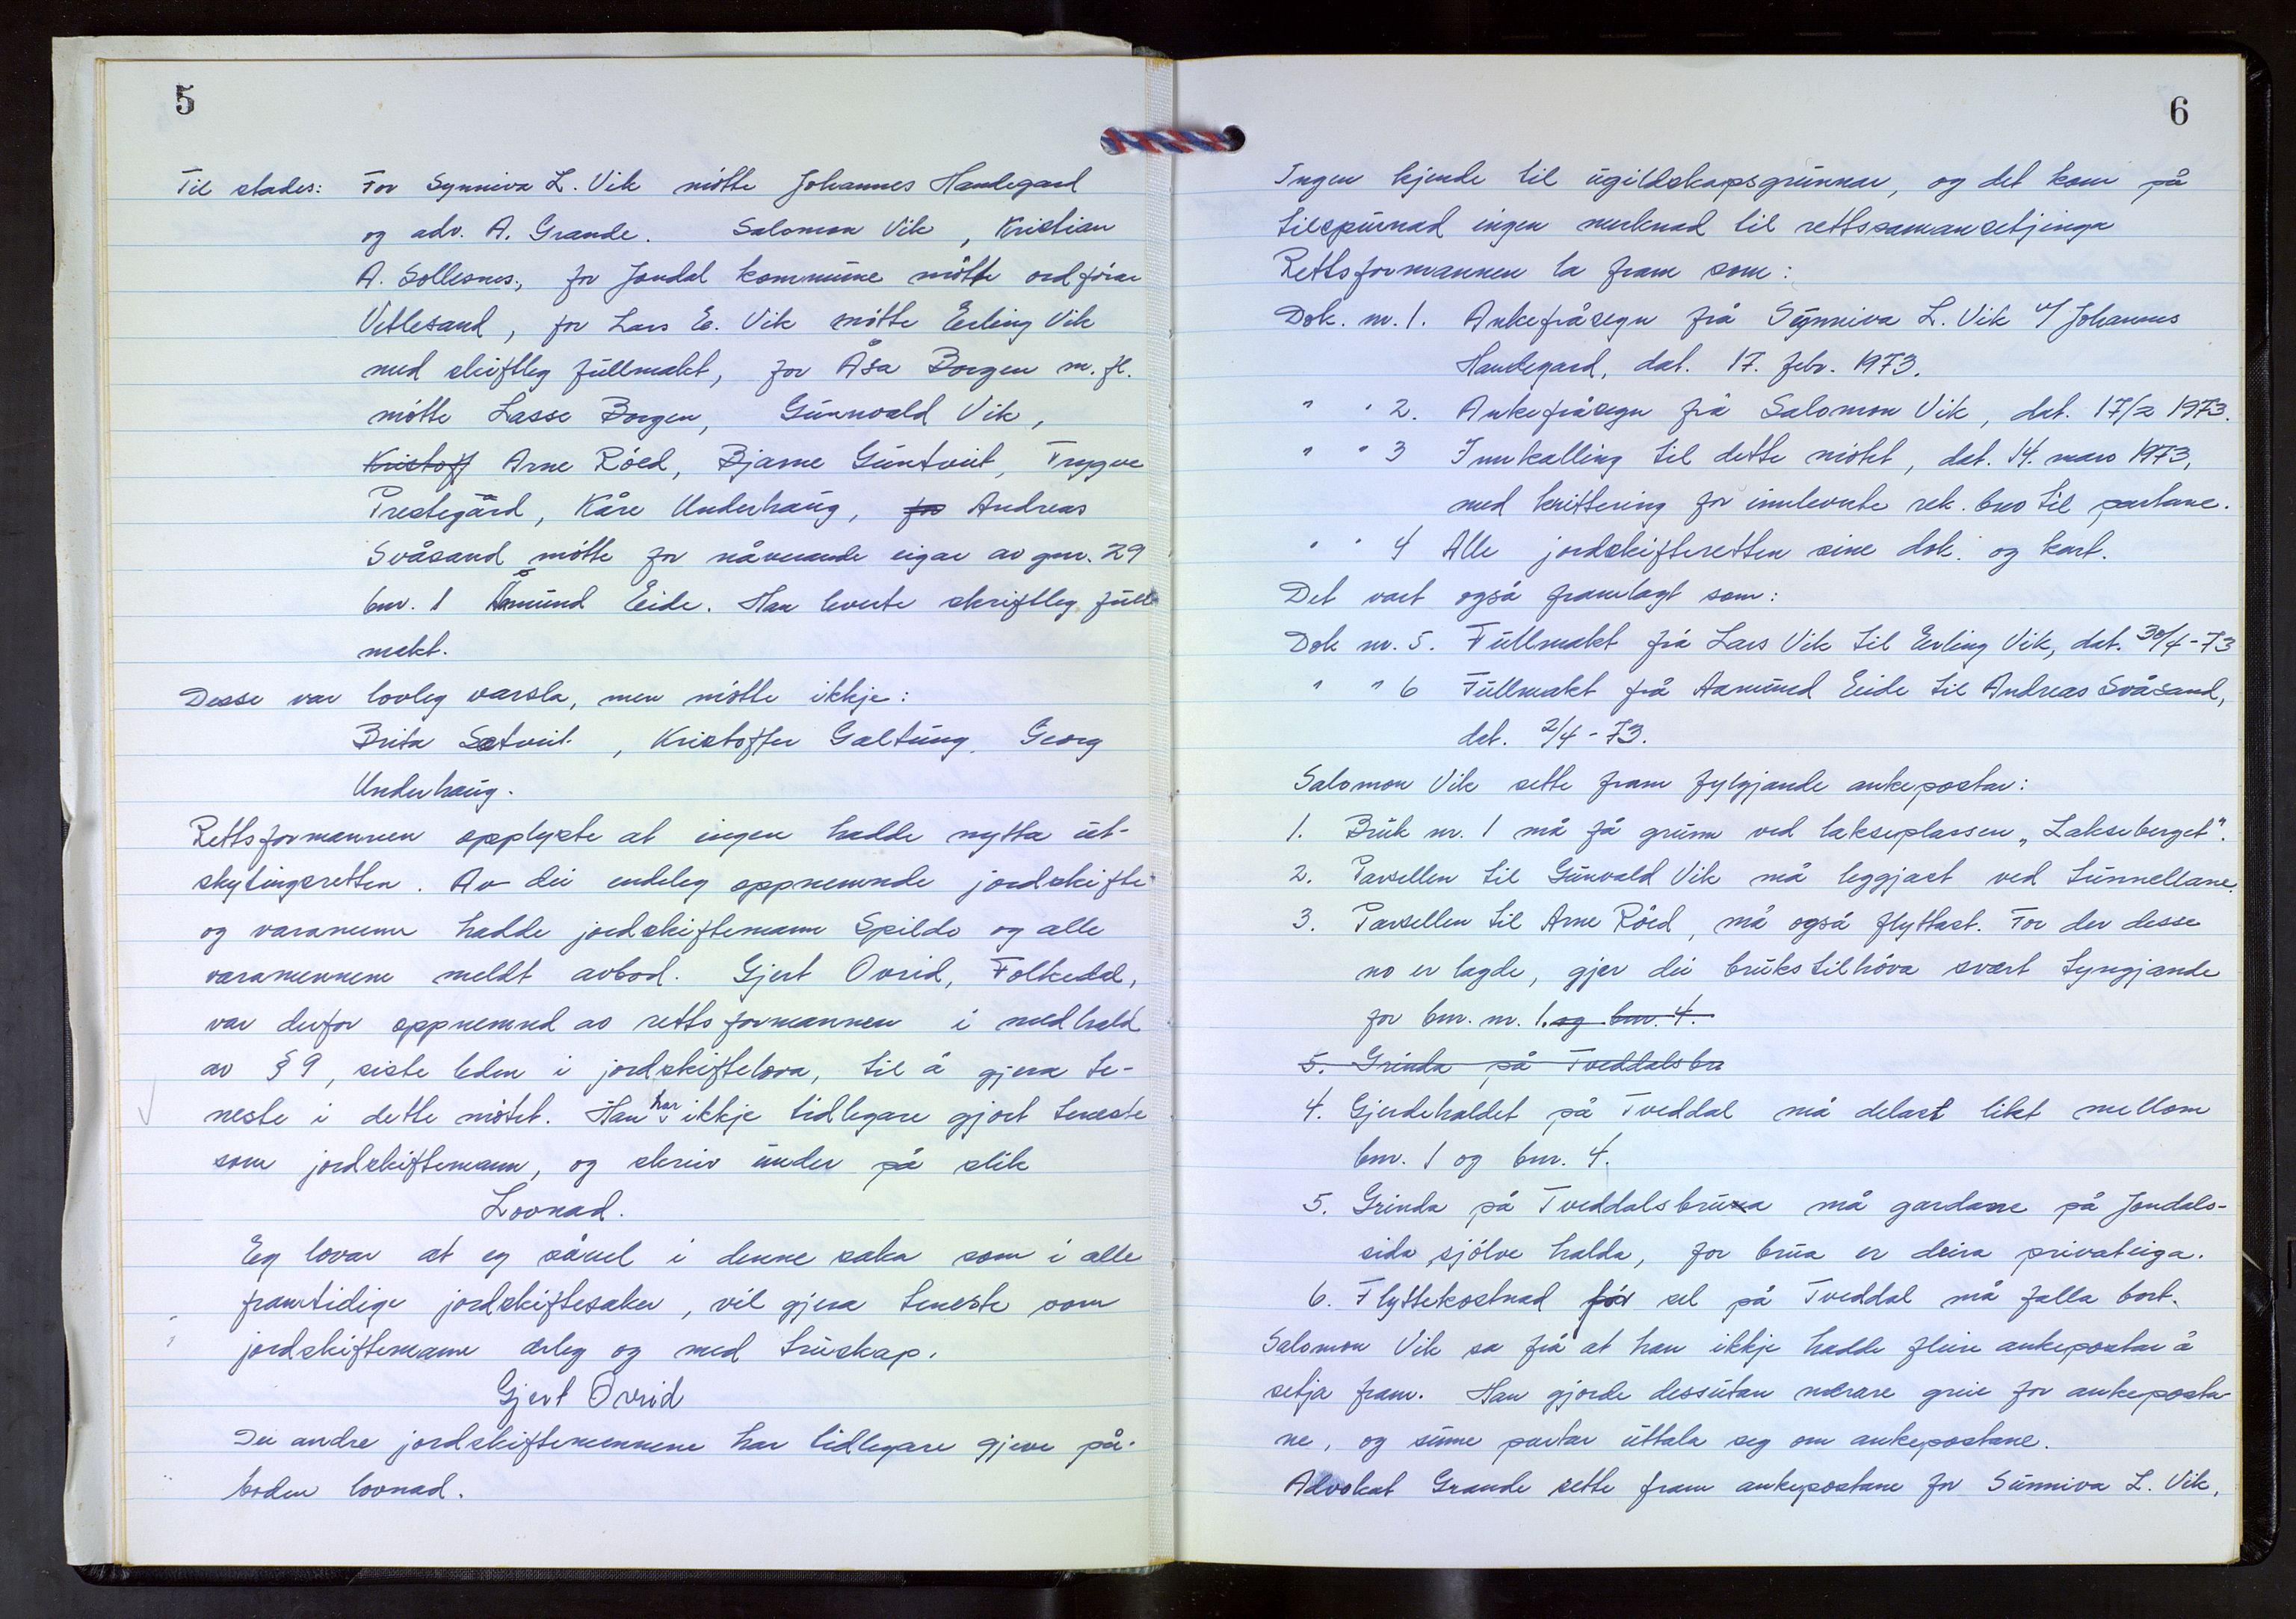 5
Til stades: For Synniva L. Vik møtte Johannes Handegard
og adv. A. Grande. Salomon Vik, Kristian
A. Sollesnes, for Jondal kommune møtte ordførar
Vetlesand, for Lars E. Vik møtte Erling Vik
med skriftleg fullmakt, for Åsa Borgen m. fl.
møtte Lasse Borgen, Gunnvald Vik,
Kristoff Arne Røed, Bjarne Guntveit, Trygve
Prestegård, Kåre Underhaug, for Andreas
Svåsand møtte for nåverande eigar av gnr. 29
bnr. 1 Åmund Eide. Han leverte skriftleg full-
makt.
Desse var lovleg varsla, men møtte ikkje:
Brita Sætveit, Kristoffer Galtung, Georg
Underhaug.
Rettsformannen opplyste at ingen hadde nytta ut-
skytingsretten. Av dei endeleg oppnemnde jordskifte-
og varamenn hadde jordskiftemann Spildo og alle
varamennene meldt avbod. Gjert Ovrid, Folkedal,
var derfor oppnemnd av rettsformannen i medhald
av § 9, siste leden i jordskiftelova, til å gjera te-
neste i dette møtet. Han har ikkje tidlegare gjort teneste
som jordskiftemann, og skriv under på slik
Lovnad.
Eg lovar at eg såvel i denne saka som i alle
framtidige jordskiftesaker, vil gjera teneste som
jordskiftemann ærleg og med truskap.
Gjert Ovrid
Dei andre jordskiftemennene har tidlegare gjeve på-
boden lovnad.
6
Ingen kjende til ugildskapsgrunnar, og det kom på
tilspurnad ingen merknad til rettssamansetjinga
Rettsformannen la fram som:
Dok. nr. 1. Ankefråsegn frå Synniva L. Vik v/ Johannes
Handegard, dat. 17. febr. 1973.
" " 2. Ankefråsegn frå Salomon Vik, dat. 17/2 1973.
" " 3 Innkalling til dette møtet, dat. 14. mars 1973,
med kvittering for innleverte rek. brev til partane.
" " 4 Alle jordskifteretten sine dok. og kart.
Det vart også framlagt som:
Dok nr. 5. Fullmakt frå Lars Vik til Erling Vik, dat. 30/4-73
" " 6 Fullmakt frå Aamund Eide til Andreas Svåsand,
dat. 2/4-73.
Salomon Vik sette fram fylgjande ankepostar:
1. Bruk nr. 1 må få grunn ved lakseplassen „Lakseberget".
2. Parsellen til Gunvald Vik må leggjast ved tunnellane.
3. Parsellen til Arne Røed, må også flyttast. For der desse
no er lagde, gjer dei brukstilhøva svært tyngjande
for bnr. nr. 1. og bnr. 4.
5. Grinda på Tveddalsbru
4. Gjerdehaldet på Tveddal må delast likt mellom
bnr. 1 og bnr. 4.
5. Grinda på Tveddalsbrua må gardane på Jondals-
sida sjølve halda, for brua er deira privateiga.
6. Flyttekostnad før sel på Tveddal må falla bort.
Salomon Vik sa frå at han ikkje hadde fleire ankepostar å
setja fram. Han gjorde dessutan nærare greie for ankeposta-
ne, og sume partar uttala seg om ankepostane.
Advokat Grande sette fram ankepostane for Sunniva L. Vik,